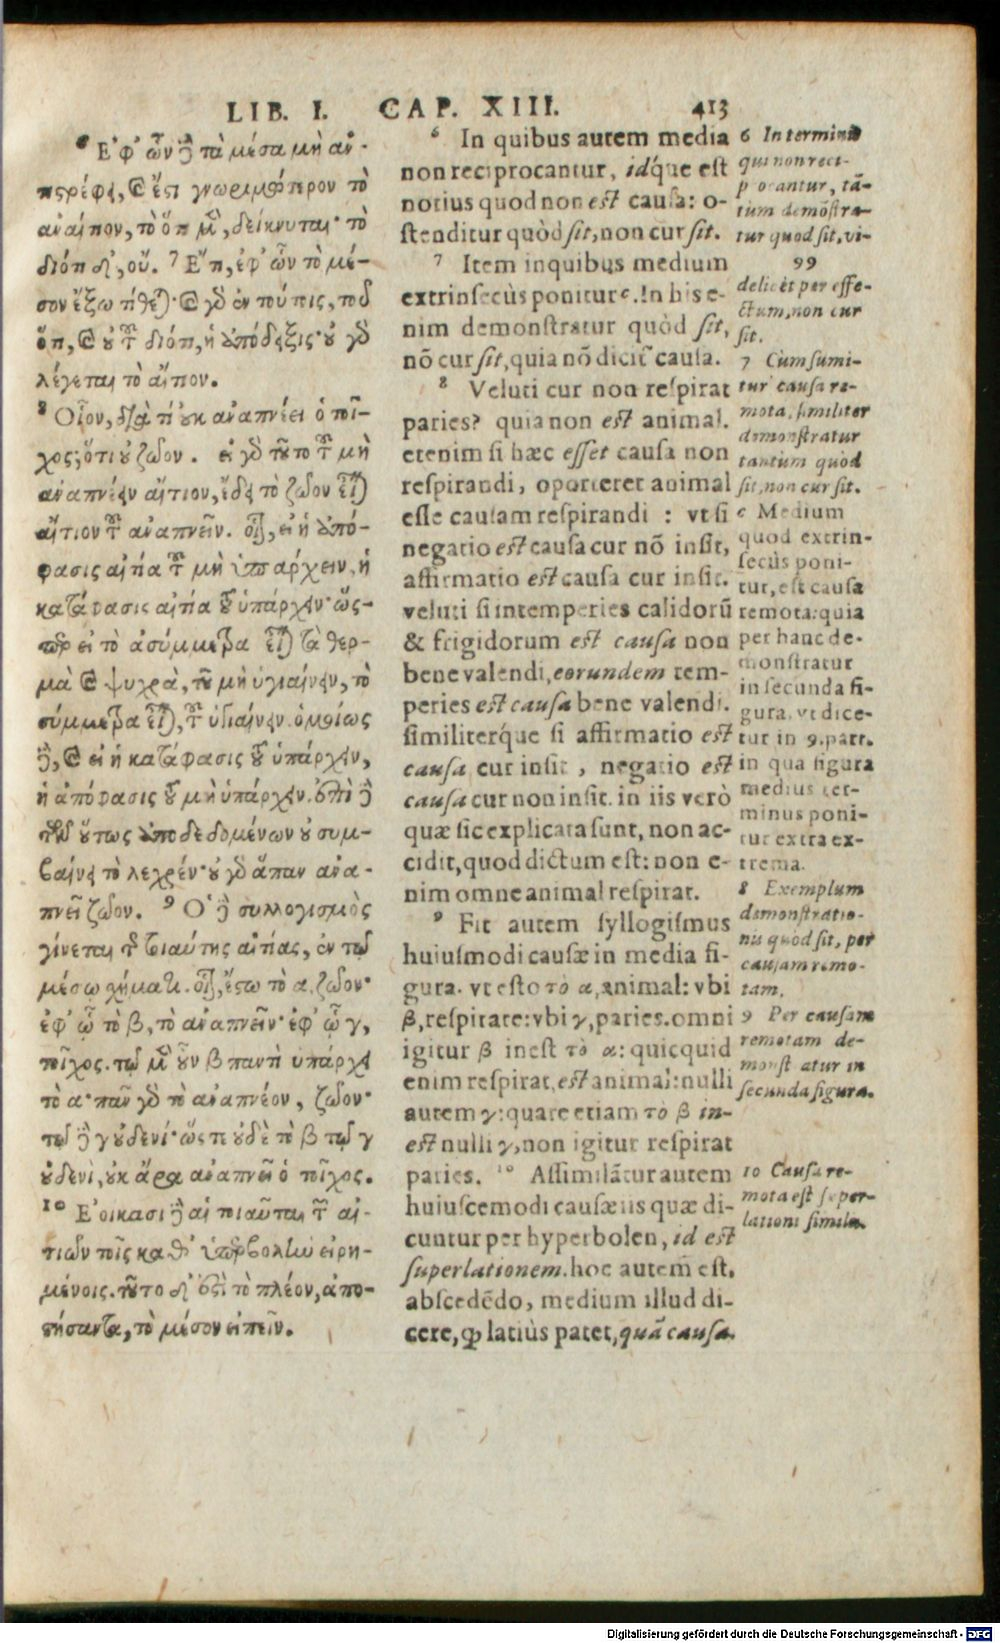 LIB. I. CAP. XIII. 413
⁶ Ἐφ᾽ ὧν δὲ τὰ μέσα μὴ ἀν-
τιστρέφει, καὶ ἔστι γνωριμώτερον τὸ
ἀναίτιον, τὸ ὅτι μὲν, δείκνυται· τὸ
διότι δ᾽, οὔ. ⁷ Ἔτι, ἐφ᾽ ὧν τὸ μέ-
σον ἔξω τίθεται· καὶ γὰρ ἐν τούτοις, τοῦ
ὅτι, καὶ οὐ τοῦ διότι, ἡ ἀπόδειξις· οὐ γὰρ
λέγεται τὸ αἴτιον.
⁸ Οἷον, διὰ τί οὐκ ἀναπνέει ὁ τοῖ-
χος; ὅτι οὐ ζῶον. εἰ γὰρ τοῦτο τοῦ μὴ
ἀναπνέειν αἴτιον, ἔδει τὸ ζῶον εἶναι
αἴτιον τοῦ ἀναπνεῖν. οἷον, εἰ ἡ ἀπό-
φασις αἰτία τοῦ μὴ ὑπάρχειν, ἡ
κατάφασις αἰτία τοῦ ὑπάρχειν· ὥς-
περ εἰ τὸ ἀσύμμετρα εἶναι τὰ θερ-
μὰ καὶ ψυχρὰ, τοῦ μὴ ὑγιαίνειν, τὸ
σύμμετρα εἶναι, τοῦ ὑγιαίνειν. ὁμοίως
δὲ, καὶ εἰ ἡ κατάφασις τοῦ ὑπάρχειν,
ἡ ἀπόφασις τοῦ μὴ ὑπάρχειν. ἐπὶ δὲ
τῶν οὕτως ἀποδεδομένων οὐ συμ-
βαίνει τὸ λεχθέν· οὐ γὰρ ἅπαν ἀνα-
πνεῖ ζῶον. ⁹ Ὁ δὲ συλλογισμὸς
γίνεται τῆς τοιαύτης αἰτίας, ἐν τῷ
μέσῳ σχήματι. οἷον, ἔστω τὸ α, ζῶον·
ἐφ᾽ ᾧ τὸ β, τὸ ἀναπνεῖν· ἐφ᾽ ᾧ γ,
τοῖχος. τῷ μὲν οὖν β παντὶ ὑπάρχει
τὸ α· πᾶν γὰρ τὸ ἀναπνέον, ζῶον·
τῷ δὲ γ οὐδενί· ὥστε οὐδὲ τὸ β τῷ γ
οὐδενὶ, οὐκ ἄρα ἀναπνεῖ ὁ τοῖχος.
¹⁰ Ἐοίκασι δὲ αἱ τοιαῦται τῶν αἰ-
τιῶν τοῖς καθ᾽ ὑπερβολὴν εἰρη-
μένοις. τοῦτο δ᾽ ἐστὶ τὸ πλέον, ἀπο-
στήσαντα, τὸ μέσον εἰπεῖν.
⁶ In quibus autem media
non reciprocantur, idq́ue est
notius quod non est causa: o-
stenditur quòd sit, non cur sit.
⁷ Item in quibus medium
extrinsecùs ponitur ᶜ. In his e-
nim demonstratur quòd sit,
nõ cur sit, quia nõ dicit᷑ causa.
⁸ Veluti cur non respirat
paries? quia non est animal.
etenim si hæc esset causa non
respirandi, oporteret animal
esse causam respirandi : vt si
negatio est causa cur nõ insit,
affirmatio est causa cur insit.
veluti si intemperies calidorũ
& frigidorum est causa non
bene valendi, eorundem tem-
peries est causa bene valendi.
similiterq́ue si affirmatio est
causa cur insit , negatio est
causa cur non insit. in iis verò
quæ sic explicata sunt, non ac-
cidit, quod dictum est: non e-
nim omne animal respirat.
⁹ Fit autem syllogismus
huiusmodi causæ in media fi-
gura. vt esto τὸ α, animal: vbi
β, respirare: vbi γ, paries. omni
igitur β inest τὸ α: quicquid
enim respirat, est animal: nulli
autem γ: quare etiam τὸ β in-
est nulli γ, non igitur respirat
paries. ¹⁰ Assimilãtur autem
huiuscemodi causæ iis quæ di-
cuntur per hyperbolen, id est
superlationem. hoc autem est,
abscedẽdo, medium illud di-
cere, ꝙ latiùs patet, quã causa.
6 In terminis
qui non reci-
procantur, tã-
tùm demõstra-
tur quod sit, vi-
99
delicet per effe-
ctum, non cur
sit.
7 Cùm sumi-
tur causa re-
mota, similiter
demonstratur
tantùm quòd
sit, non cur sit.
c Medium
quod extrin-
secùs poni-
tur, est causa
remota: quia
per hanc de-
monstratur
in secunda fi-
gura. vt dice-
tur in 9. part.
in qua figura
medius ter-
minus poni-
tur extra ex-
trema.
8 Exemplum
demonstratio-
nis quòd sit, per
causam remo-
tam.
9 Per causam
remotam de-
monstratur in
secunda figura.
10 Causa re-
mota est super-
lationi similis.
Digitalisierung gefördert durch die Deutsche Forschungsgemeinschaft - DFG